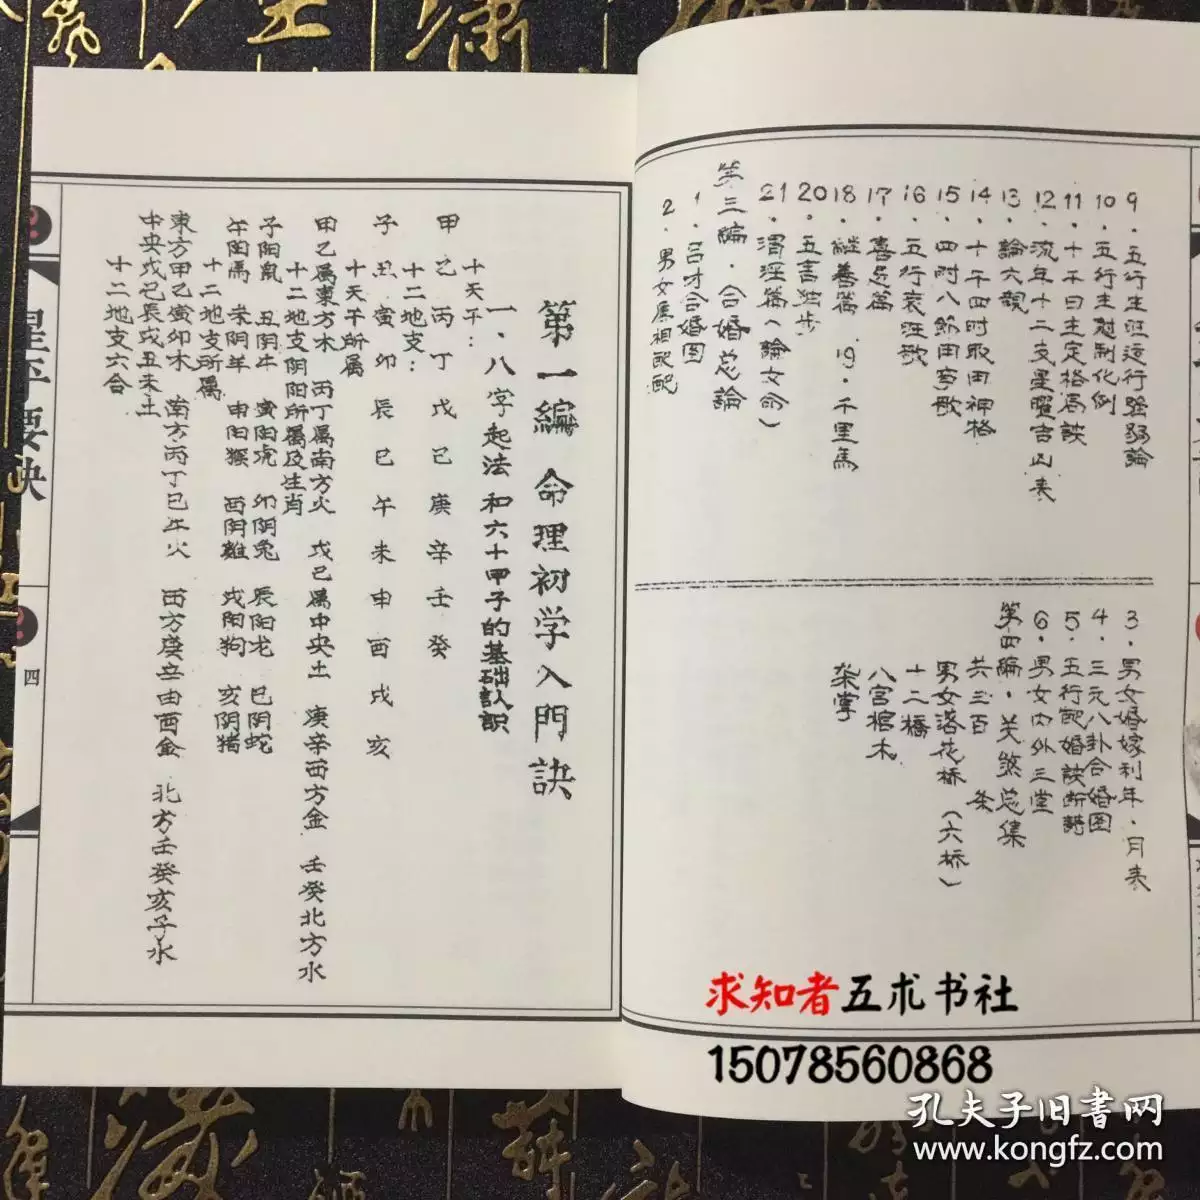 9．五行生旺运行强弱論
10．五行生尅制化例
11．十干日主定格局訣
12．流年十二支星曜吉凶表
13．論六親
14．十干四时取用神格
15．四时八節用事歌
16．五行衰旺歌
17．喜忌篇
18．継善篇 19．千里馬
20．五言独步
21．渭泾篇（論女命）
第三編．合婚总論
1．吕才合婚图
2．男女属相配配
3．男女婚嫁利年．月表
4．三元八卦合婚图
5．五行配婚訣断語
6．男女内外三堂
第四編．关煞总集
共三百 条
男女落花桥（六桥）
十二橋
八宫棺木
架掌
第一編 命理初学入門訣
一．八字起法和六十甲子的基础认識
十天干：
甲乙丙丁戊己庚辛壬癸
十二地支：
子丑寅卯辰巳午未申酉戌亥
十天干所属
甲乙属東方木 丙丁属南方火 戊己属中央土 庚辛西方金 壬癸北方水
十二地支阴阳所属及生肖
子阳鼠 丑阴牛 寅阳虎 卯阴兔 辰阳龙 巳阴蛇
午阳馬 未阴羊 申阳猴 酉阴雞 戌阳狗 亥阴猪
十二地支所属
東方甲乙寅卯木 南方丙丁巳午火 西方庚辛申酉金 北方壬癸亥子水
中央戊己辰戌丑未土
十二地支六合
星平要訣
四
求知者五术书社
15078560868
孔夫子旧書网
www.kongfz.com